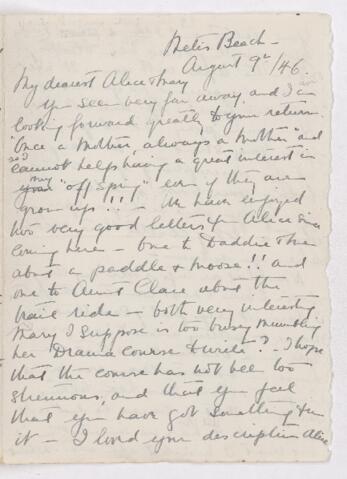 Metis Beach -
August 9th/46.
My dearest Alice & Mary
You seem very far away and I am
looking forward greatly to your return.
"Once a mother, always a mother" and
so I cannot help having a great interest in
my your "off spring" even if they are
grown ups!!! - We have enjoyed
two very good letters from Alice since
coming here - one to Daddie &
about a paddle & moose!! and
one to Aunt Clare about the
trail ride - both very interesting
Mary I suppose is too busy
her Drama course to write? - I hope
that the course has not been too
strenuous, and that you feel
that you have got something from
it - I loved your description Alice